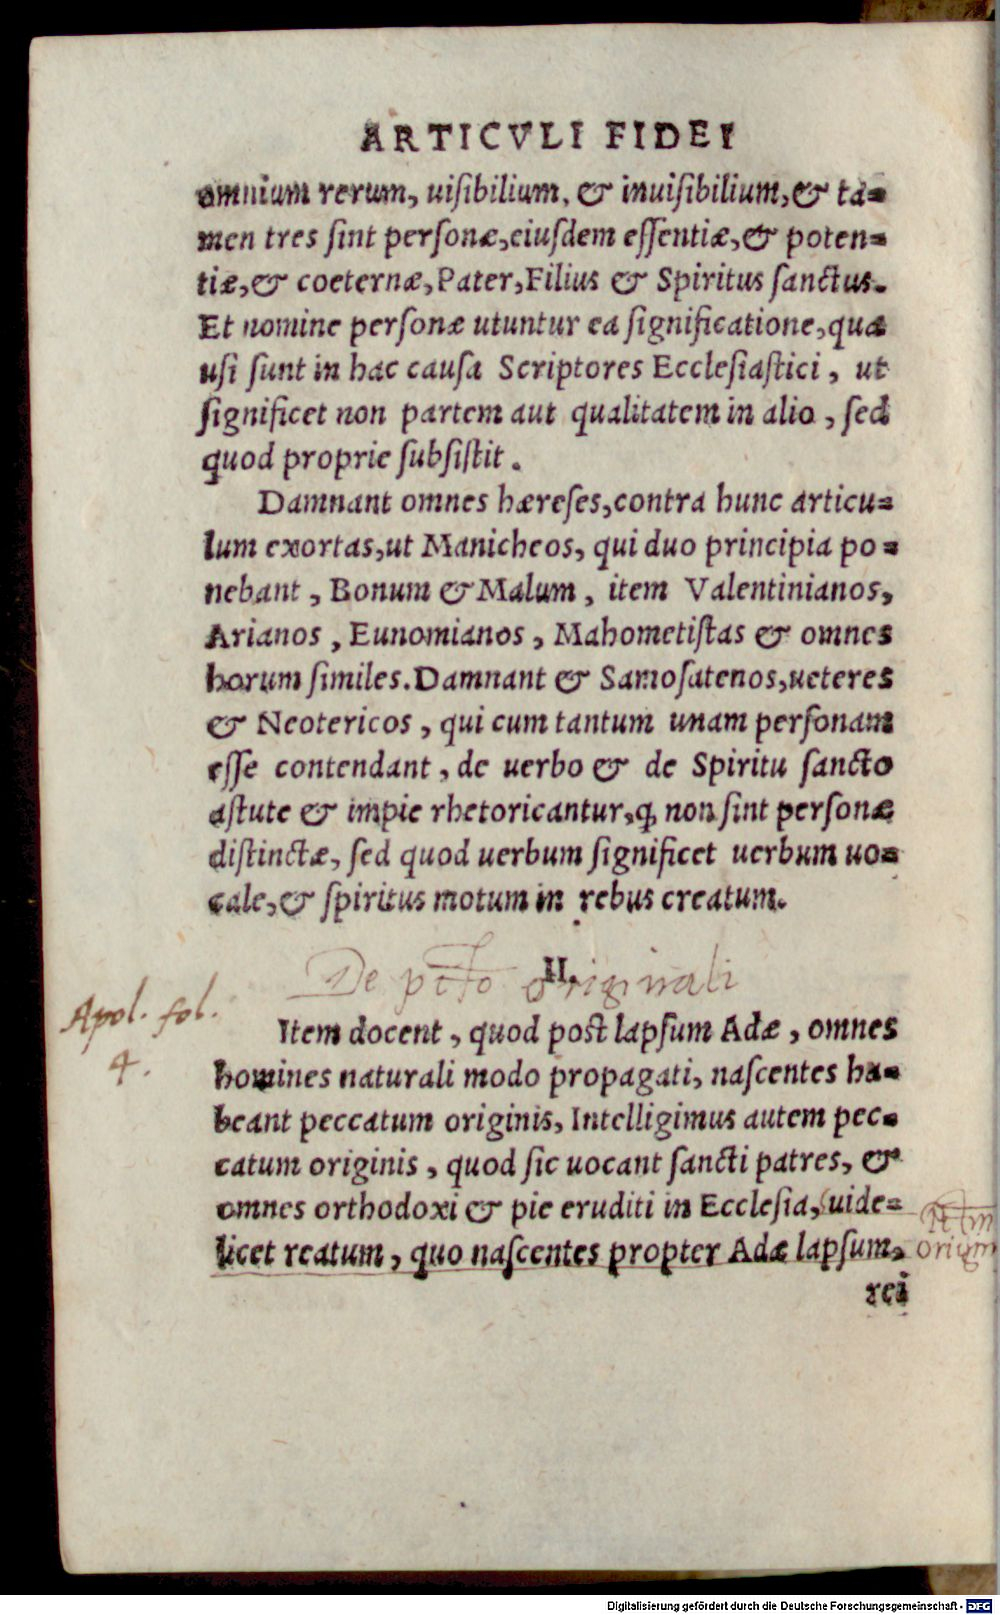 ARTICVLI FIDEI
omnium rerum, uiſibilium, & inuiſibilium,& ta=
men tres ſint perſonæ,eiuſdem eſſentiæ,& poten=
tiæ,& coeternæ,Pater,Filius & Spiritus ſanctus.
Et nomine perſonæ utuntur ea ſignificatione,qua
uſi ſunt in hac cauſa Scriptores Eccleſiaſtici, ut
ſignificet non partem aut qualitatem in alio, ſed
quod proprie ſubſiſtit.
Damnant omnes hæreſes,contra hunc articu=
lum exortas,ut Manicheos, qui duo principia po=
nebant, Bonum & Malum, item Valentinianos,
Arianos, Eunomianos, Mahometiſtas & omnes
horum ſimiles.Damnant & Samoſatenos,ueteres
& Neotericos, qui cum tantum unam perſonam
eſſe contendant, de uerbo & de Spiritu ſancto
aſtute & impie rhetoricantur,ꝙ non ſint perſonæ
diſtinctæ, ſed quod uerbum ſignificet uerbum uo=
cale,& ſpiritus motum in rebus creatum.
II.
De pcto originali
Apol. fol.
4.
Item docent, quod poſt lapſum Adæ, omnes
homines naturali modo propagati, naſcentes ha=
beant peccatum originis, Intelligimus autem pec=
catum originis, quod ſic uocant ſancti patres, &
omnes orthodoxi & pie eruditi in Eccleſia, uide=
licet reatum, quo naſcentes propter Adæ lapſum,
rei
Digitalisierung gefördert durch die Deutsche Forschungsgemeinschaft - DFG